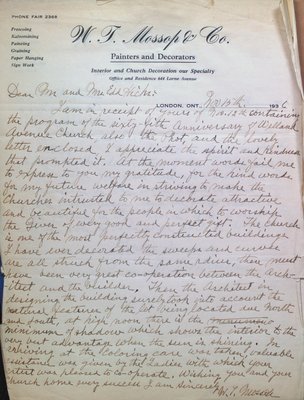 PHONE FAIR 2366
W. T. Mossop & Co.
Frescoing
Kalsomining
Painting
Graining
Paper Hanging
Sign Work
Painters and Decorators
Interior and Church Decoration our Specialty
Office and Residence 644 Lorne Avenue
LONDON, ONT. Nov 16th 1936
Dear Mr. and Mrs.
I am in receipt of yours of Nov. 12th containing
the program of the sixty fifth Anniversary of Welland
Avenue Church also the and the lovely
letter enclosed. I appreciate the spirit and kindness
that prompted it. At the moment words fail me
to express to you my gratitude, for the kind words
for my future welfare in striving to make the
Churches intrusted to me to decorate attractive
and beautiful for the people in which to worship
the Giver of every good and perfect gift. The Church
is one of the most perfectly constructed buildings
I have ever decorated the sweeps and curves
are all struck from the same radius, there must
have been very great co-operation between the Arch-
itect and the builder. Then the Architect in
designing the building surely took into account the
natural features of the lot being located due North
and South, at high noon there is the
minimum of shadow which shows the interior to the
very best advantage when the sun is shining. In
arriving at the coloring care was taken, valuable
assistance was given by the Ladies with which your
artist was pleased to co-operate. Wishing you and your
Church home every success I am sincerely
W. T. Mossop